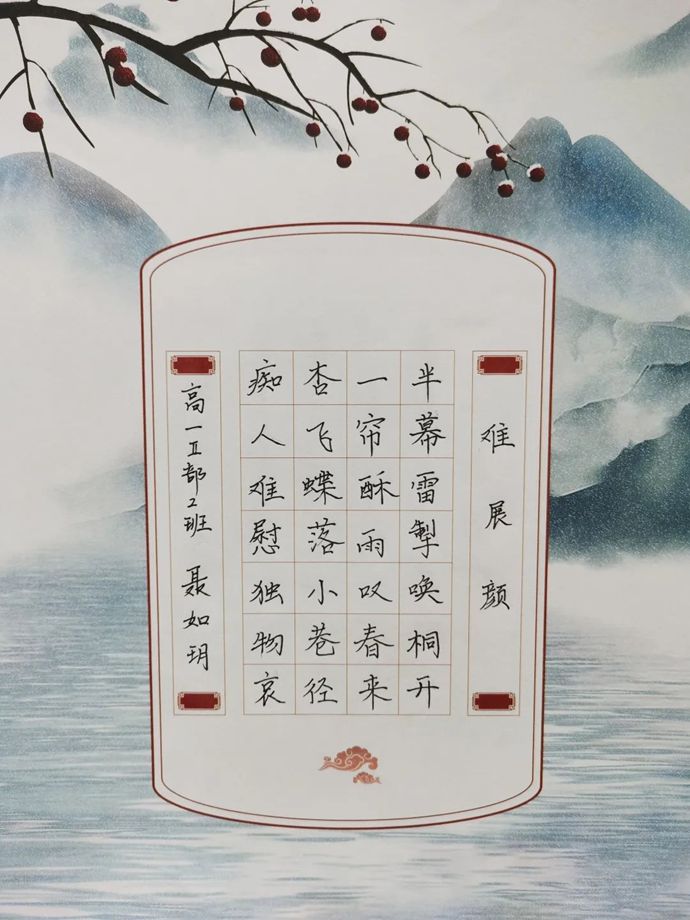 难展颜
半幕雷掣唤桐开
一帘酥雨叹春来
杏飞蝶落小巷径
痴人难慰独物哀
高一Ⅱ部2班 聂如玥